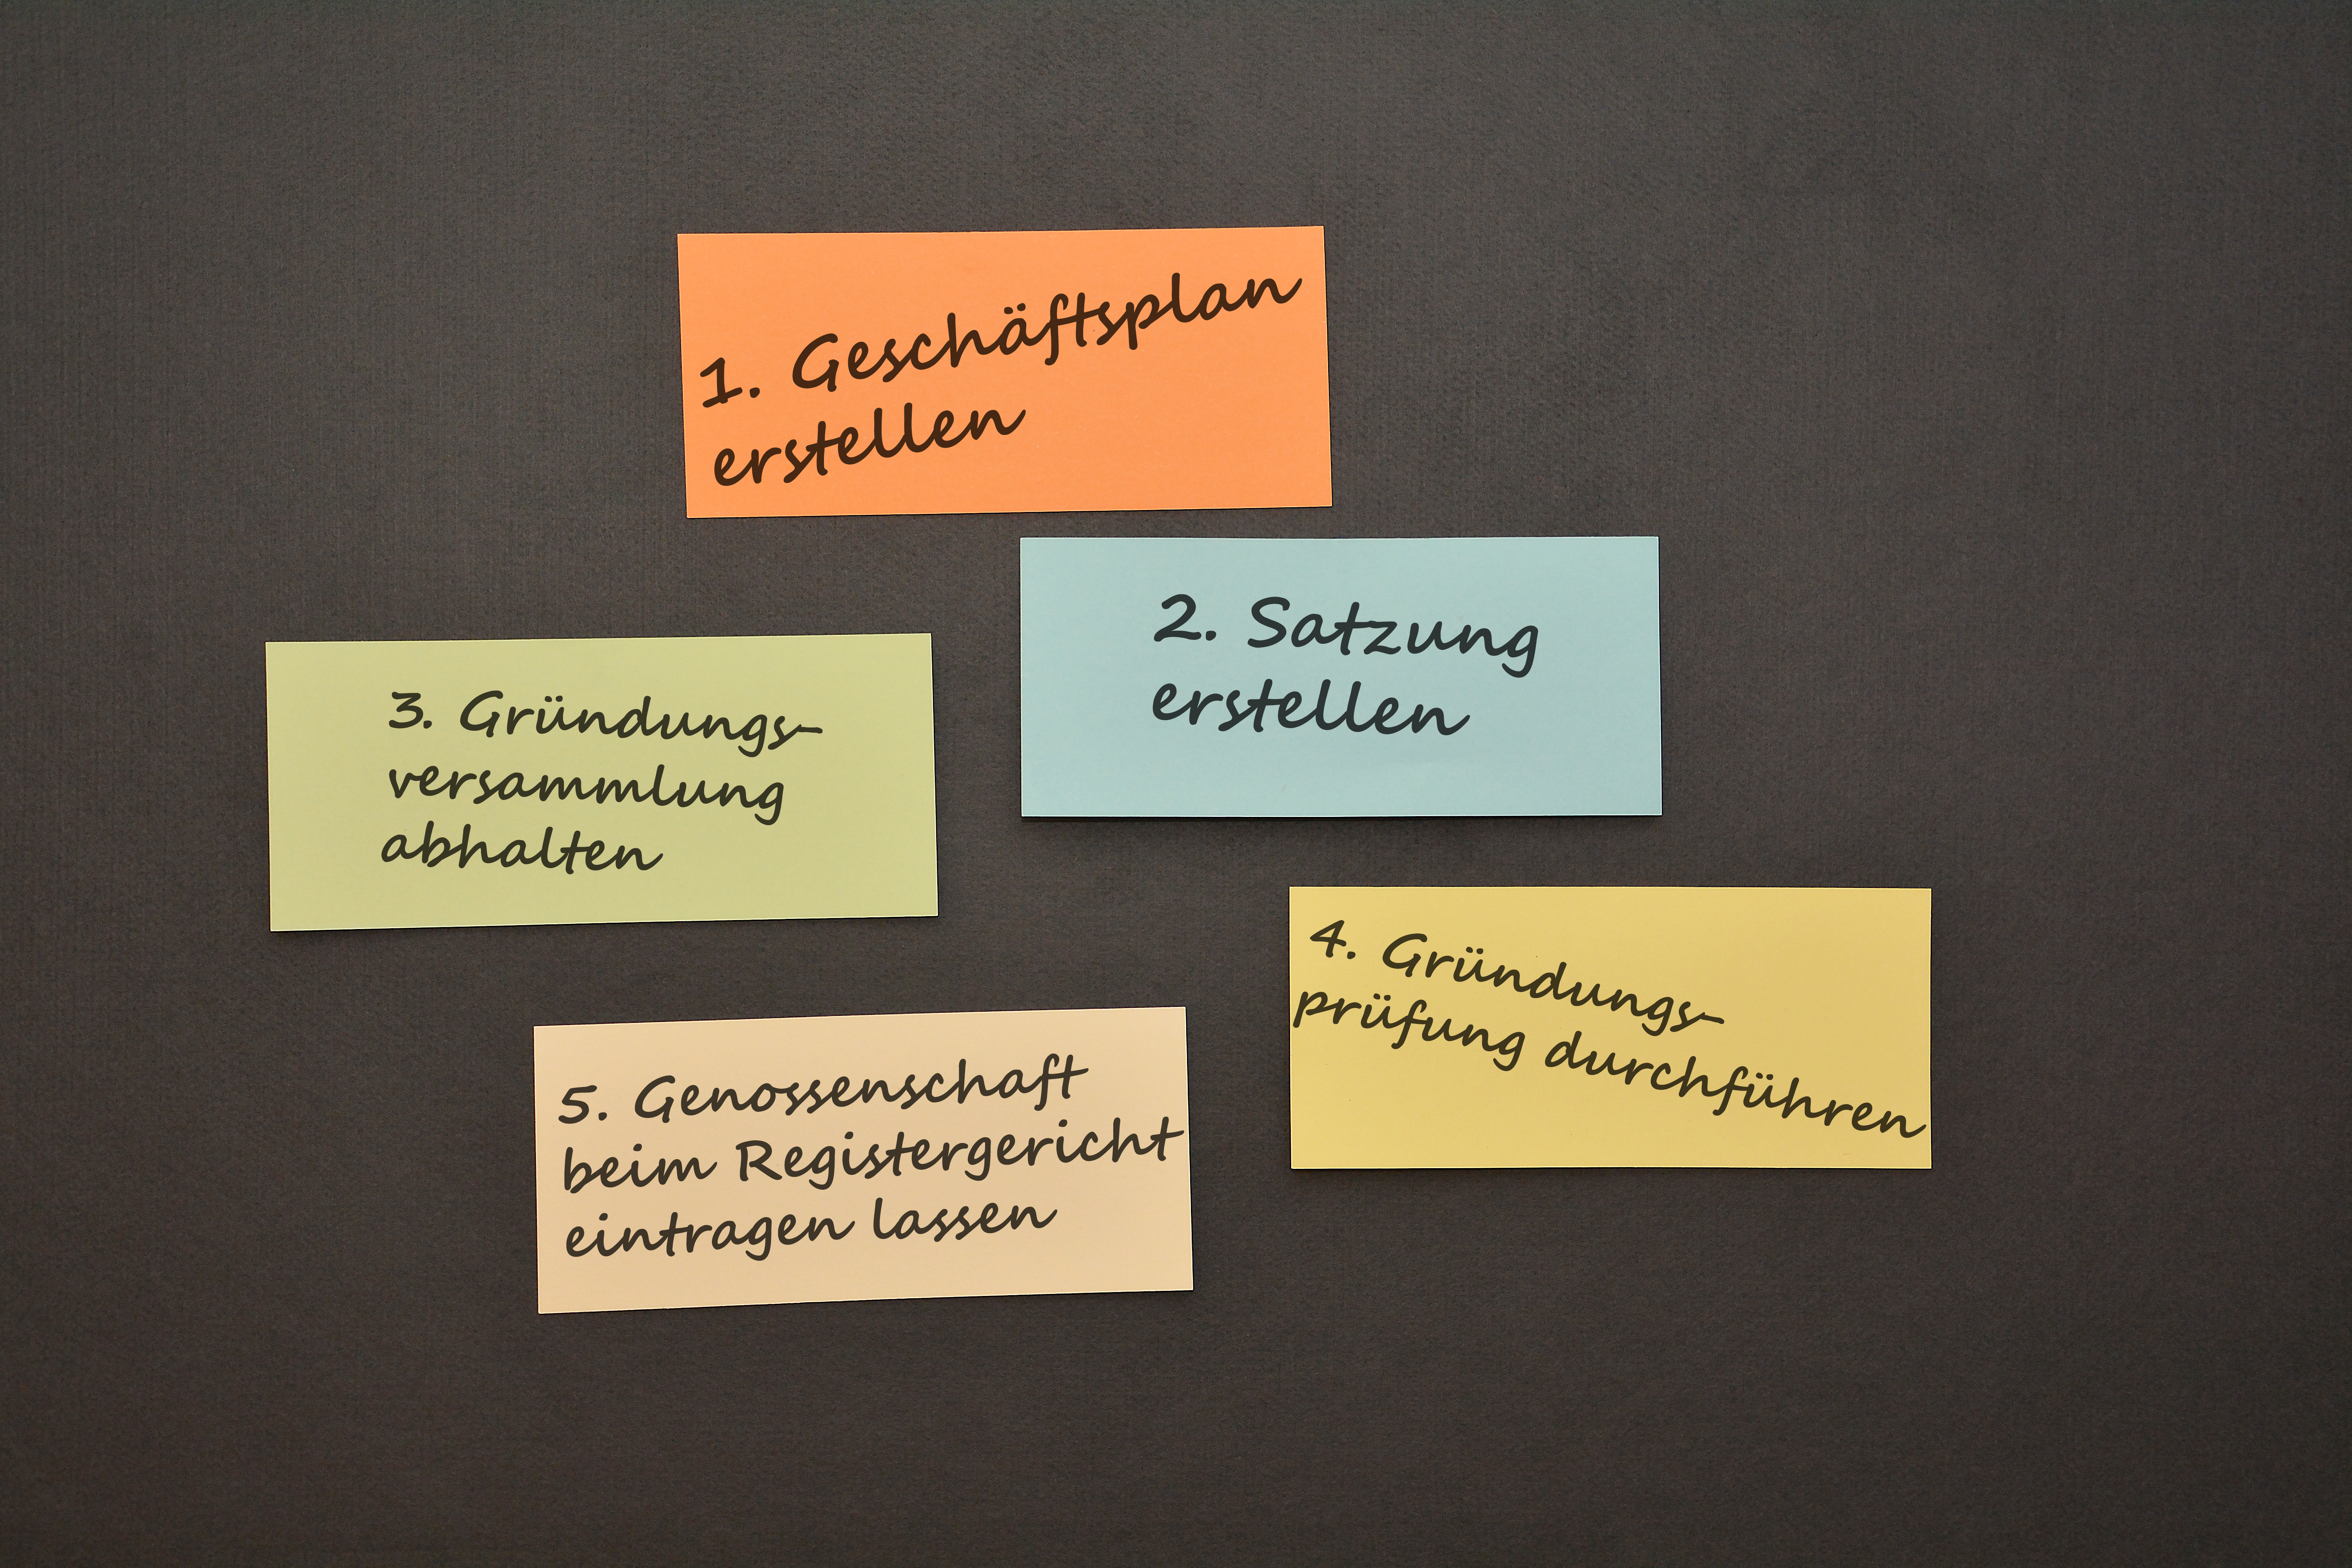 1. Geschäftsplan
erstellen
2. Satzung
erstellen
3. Gründungs-
versammlung
abhalten
4. Gründungs-
prüfung durchführen
5. Genossenschaft
beim Registergericht
eintragen lassen